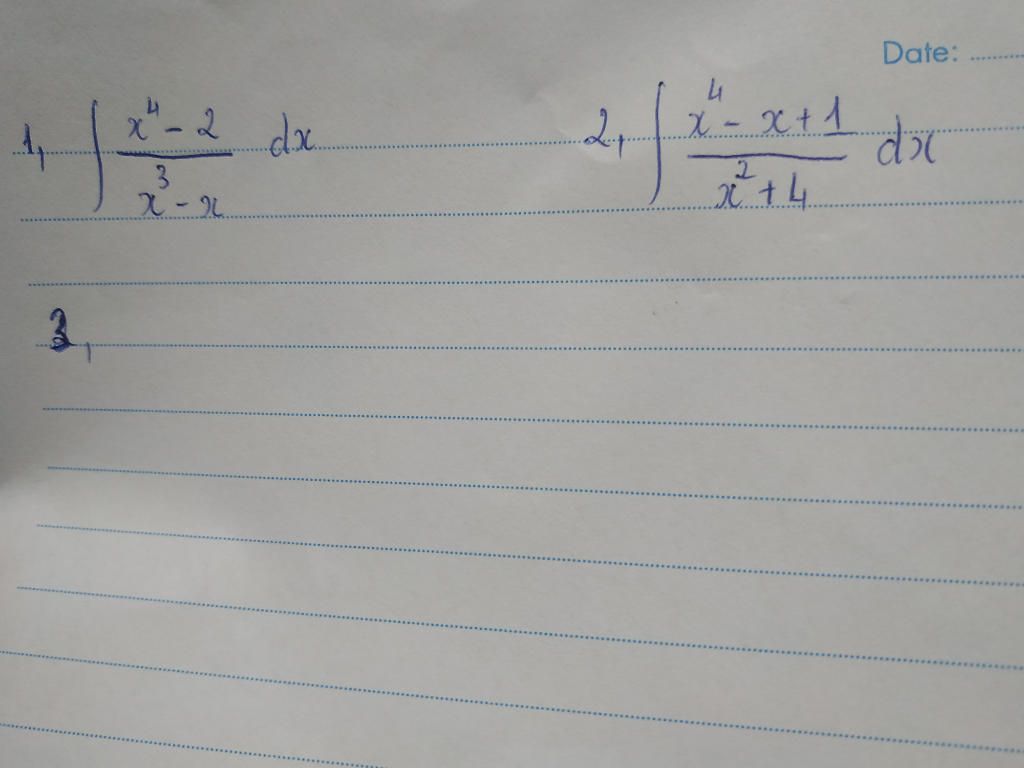 Date: ..........
1, ∫ (x⁴ - 2)/(x³ - x) dx 2, ∫ (x⁴ - x + 1)/(x² + 4) dx
3,